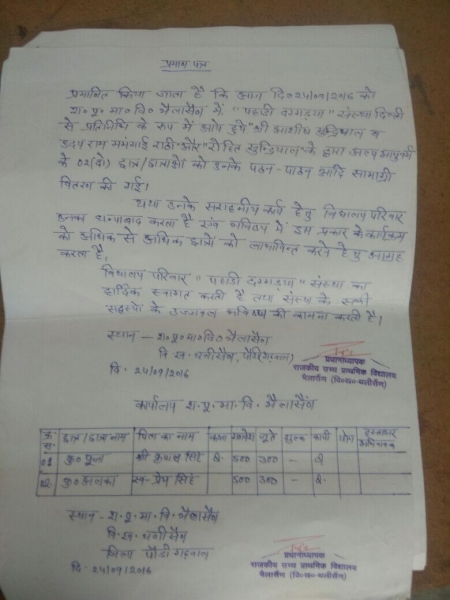 प्रमाण पत्र
प्रमाणित किया जाता है कि आज दि० 24/09/2016 को
रा० पू० मा० वि० भैलासैंण में "पहाड़ी दगड्या" संस्था दिल्ली
से प्रतिनिधि के रूप में आये हुये श्री आशीष कुण्डियाल व
उदय राम ममगाई राठी और रोहित कुण्डियाल के द्वारा अल्प आयुवर्ग
के 02(दो) छात्र/छात्राओं को उनके पठन-पाठन आदि सामाग्री
वितरण की गई।
तथा उनके सराहनीय कार्य हेतु विद्यालय परिवार
उनका धन्यावाद करता है एवं भविष्य में इस प्रकार के कार्यक्रम
को अधिक से अधिक छात्रों को लाभान्वित करने हेतु आग्रह
करता है,
विद्यालय परिवार "पहाड़ी दगड्या" संस्था का
हार्दिक स्वागत करती है तथा संस्था के सभी
सदस्यों के उज्जवल भविष्य की कामना करती है।
स्थान - रा० पू० मा० वि० भैलासैंण
वि० ख० थलीसैंण, पौड़ी गढ़वाल
दि. 24/09/2016
प्रधानाध्यापक
राजकीय उच्च प्राथमिक विद्यालय
भैलासैंण (वि०ख०-थलीसैंण)
कार्यालय रा. पू. मा. वि. भैलासैंण
क्र सं. छात्र/छात्रा नाम पिता का नाम कक्षा जूते शुल्क कापी पेन हस्ताक्षर अभिभावक
01 कु० पूजा श्री सिंह 500 300 -
02 कु० अलका स्व० प्रेम सिंह 500 300 -
स्थान - रा. पू. मा. वि. भैलासैंण
वि. ख. थलीसैंण
जिला पौड़ी गढ़वाल
दि. 24/09/2016
प्रधानाध्यापक
राजकीय उच्च प्राथमिक विद्यालय
भैलासैंण (वि०ख०-थलीसैंण)